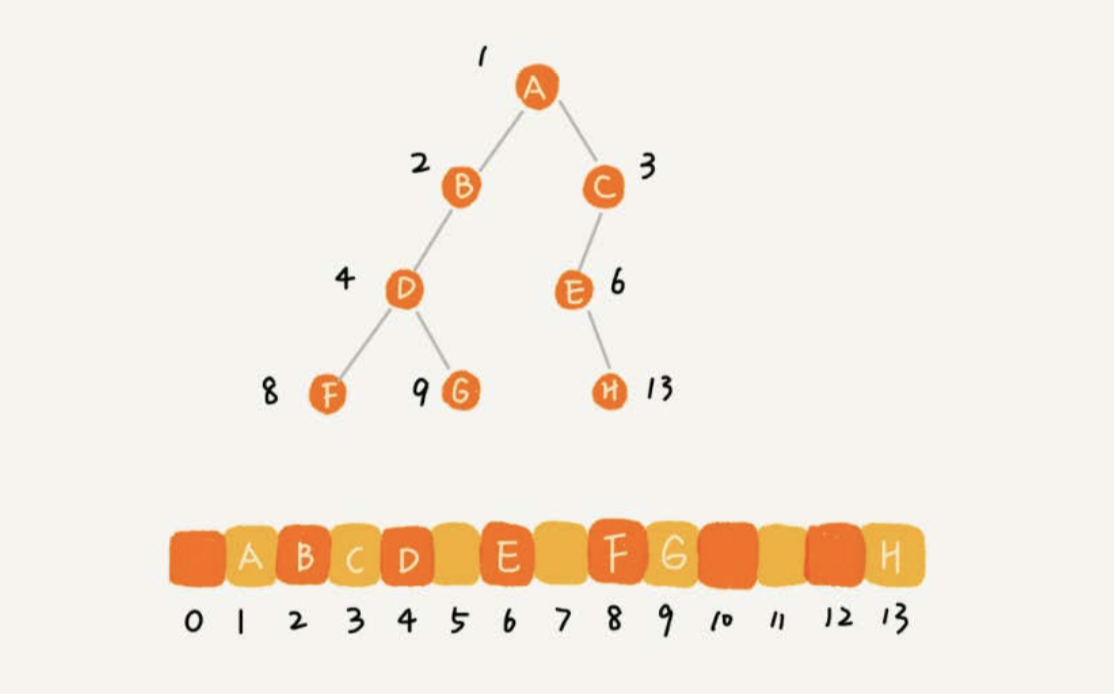 1
A
2 B C 3
4 D E 6
8 F 9 G H 13
A B C D E F G H
0 1 2 3 4 5 6 7 8 9 10 11 12 13